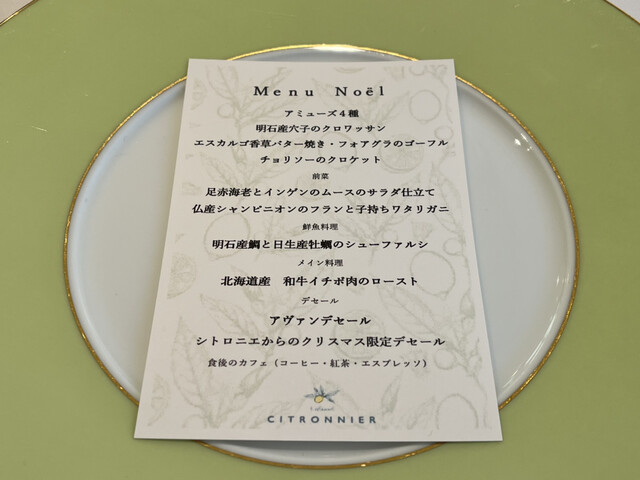 Menu Noël
アミューズ４種
明石産穴子のクロワッサン
エスカルゴ香草バター焼き・フォアグラのゴーフル
チョリソーのクロケット
前菜
足赤海老とインゲンのムースのサラダ仕立て
仏産シャンピニオンのフランと子持ちワタリガニ
鮮魚料理
明石産鯛と日生産牡蠣のシューファルシ
メイン料理
北海道産　和牛イチボ肉のロースト
デセール
アヴァンデセール
シトロニエからのクリスマス限定デセール
食後のカフェ（コーヒー・紅茶・エスプレッソ）
CITRONNIER